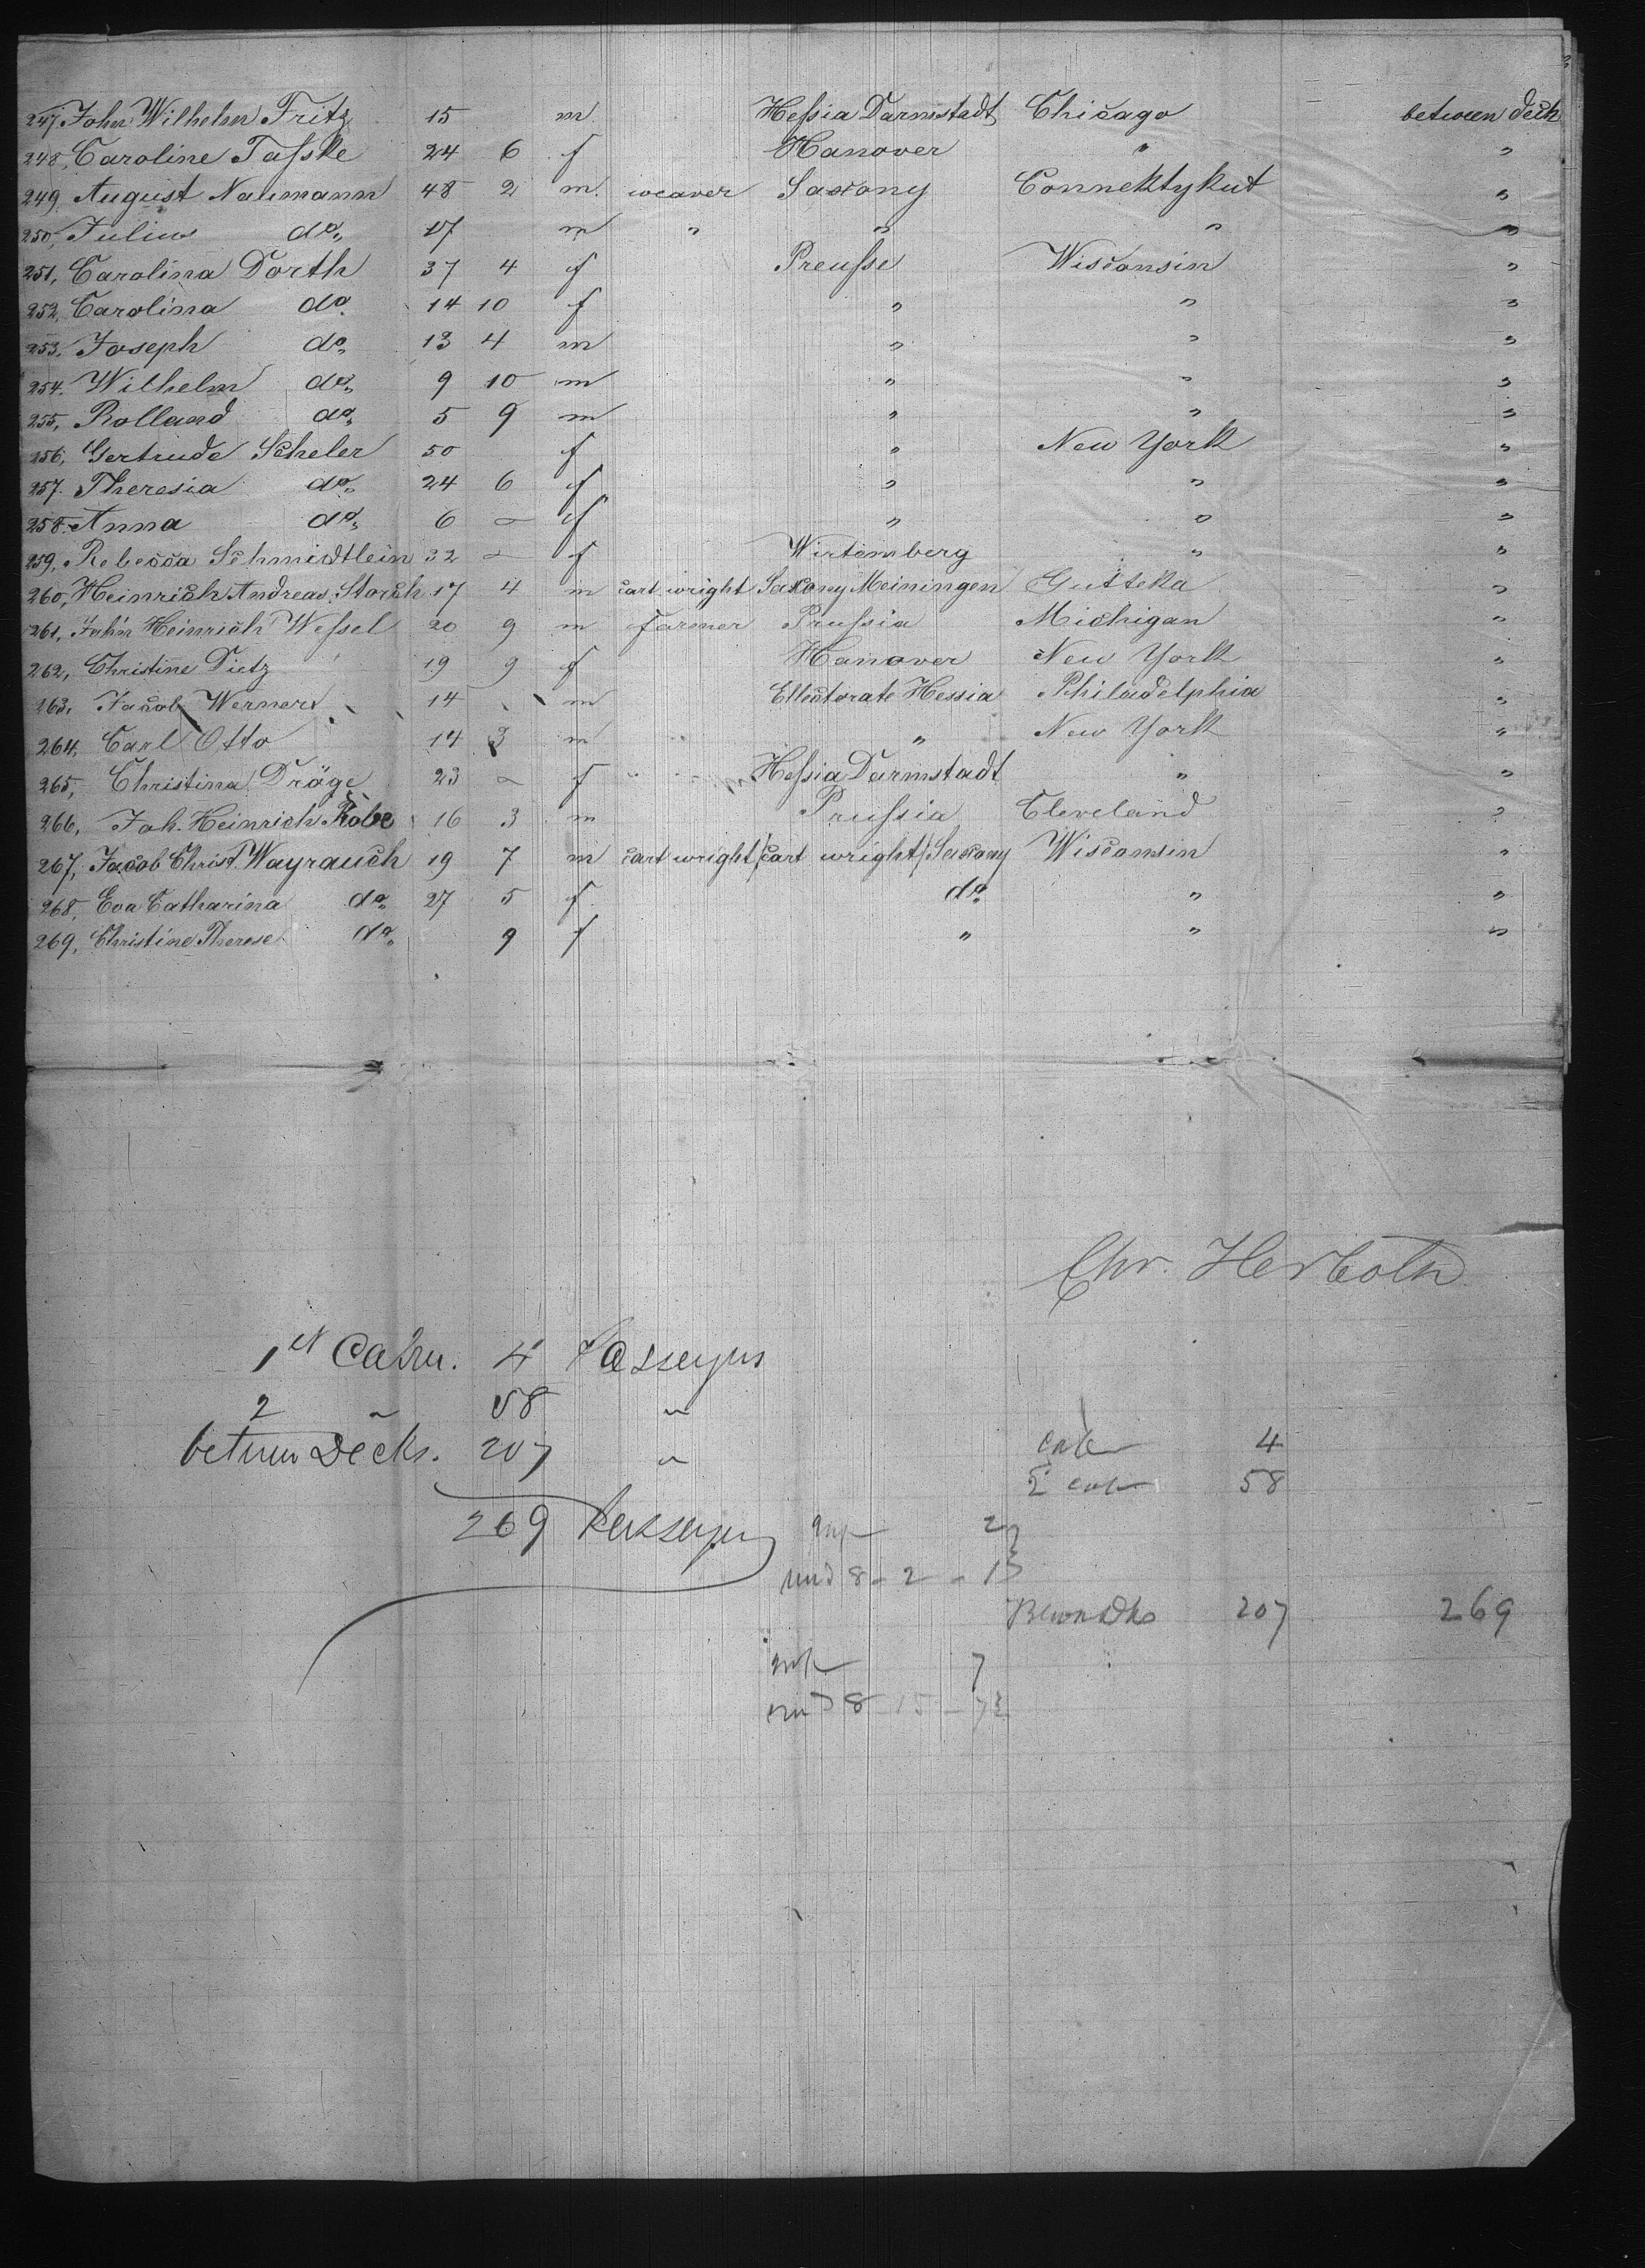 247, John Wilhelm Fritz 15 m. Hessia Darmstadt Chicago between deck
248, Caroline Tasske 24 6 f Hanover " "
249, August Naumann 48 2 m. weaver Saxony Connektykut "
250, Julius do. 17 m " " " "
251, Carolina Dorth 37 4 f Preusse Wisconsin "
252, Carolina do. 14 10 f " " "
253, Joseph do. 13 4 m " " "
254, Wilhelm do. 9 10 m " " "
255, Rolland do. 5 9 m " " "
256, Gertrude Scheler 50 f " New York "
257. Theresia do. 24 6 f " " "
258. Anna do. 6 – f " " "
259, Rebecca Schmidtlein 32 – f Wirtemberg " "
260, Heinrich Andreas Storch 17 4 m cart wright Saxony Meiningen Gutteka "
261, John Heinrich Wessel 20 9 m farmer Prussia Michigan "
262, Christine Dietz 19 9 f Hanover New York "
263, Jacob Werner 14 m Ellectorate Hessia Philadelphia "
264, Carl Otto 14 3 m " New York "
265, Christina Dröge 23 – f Hessia Darmstadt " "
266, Joh. Heinrich Robe 16 3 m Prussia Cleveland "
267, Jacob Christ. Wayrauch 19 7 m cart wright /cart wright/ Saxony Wisconsin "
268, Eva Catharina do. 27 5 f do. " "
269, Christine Therese do. 9 f " " "
Chr. Herboth
1st Cabin. 4 Passengers
2 " 58 "
between Decks. 207 "
269 Passengers
cab 4
2 cab 58
2
8 - 2 -
207 269
7
8 15